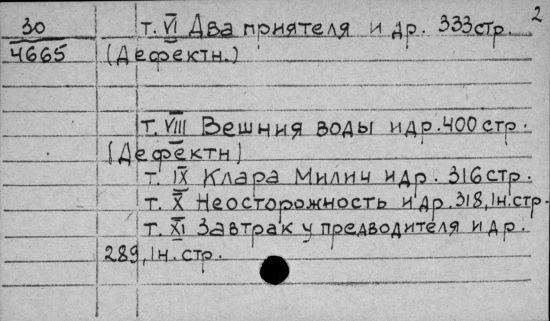 2
30 т. VI Два приятеля и др. 333стр.
4665 (Дефектн.)
т. VIII Вешния воды и др. 400 стр.
(Дефектн)
т. IX Клара Милич и др. 316 стр.
т. X Неосторожность и др. 318, 1н. стр.
т. XI Завтрак у предводителя и др.
289, 1н. стр.